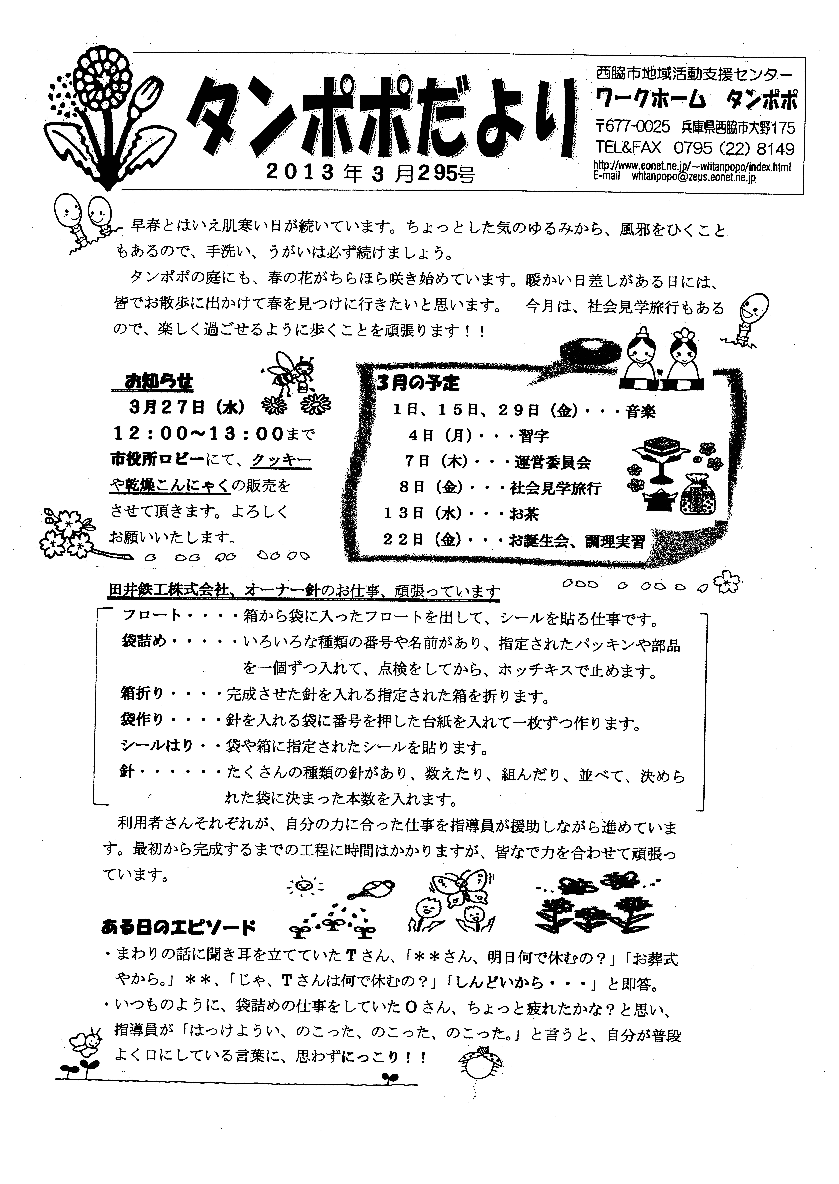 タンポポだより
2013年3月295号
西脇市地域活動支援センター
ワークホーム タンポポ
〒677-0025 兵庫県西脇市大野175
TEL&FAX 0795(22)8149
http://www.eonet.ne.jp/~whtanpopo/index.html
E-mail whtanpopo@zeus.eonet.ne.jp
早春とはいえ肌寒い日が続いています。ちょっとした気のゆるみから、風邪をひくこと
もあるので、手洗い、うがいは必ず続けましょう。
タンポポの庭にも、春の花がちらほら咲き始めています。暖かい日差しがある日には、
皆でお散歩に出かけて春を見つけに行きたいと思います。 今月は、社会見学旅行もある
ので、楽しく過ごせるように歩くことを頑張ります！！
お知らせ
3月27日（水）
12：00～13：00まで
市役所ロビーにて、クッキー
や乾燥こんにゃくの販売を
させて頂きます。よろしく
お願いいたします。
3月の予定
1日、15日、29日（金）・・・音楽
4日（月）・・・習字
7日（木）・・・運営委員会
8日（金）・・・社会見学旅行
13日（水）・・・お茶
22日（金）・・・お誕生会、調理実習
田井鉄工株式会社、オーナー針のお仕事、頑張っています
フロート・・・・箱から袋に入ったフロートを出して、シールを貼る仕事です。
袋詰め・・・・・いろいろな種類の番号や名前があり、指定されたパッキンや部品
を一個ずつ入れて、点検をしてから、ホッチキスで止めます。
箱折り・・・・完成させた針を入れる指定された箱を折ります。
袋作り・・・・針を入れる袋に番号を押した台紙を入れて一枚ずつ作ります。
シールはり・・袋や箱に指定されたシールを貼ります。
針・・・・・・たくさんの種類の針があり、数えたり、組んだり、並べて、決めら
れた袋に決まった本数を入れます。
利用者さんそれぞれが、自分の力に合った仕事を指導員が援助しながら進めていま
す。最初から完成するまでの工程に時間はかかりますが、皆なで力を合わせて頑張っ
ています。
ある日のエピソード
・まわりの話に聞き耳を立てていたTさん、「＊＊さん、明日何で休むの？」「お葬式
やから。」＊＊、「じゃ、Tさんは何で休むの？」「しんどいから・・・」と即答。
・いつものように、袋詰めの仕事をしていたOさん、ちょっと疲れたかな？と思い、
指導員が「はっけようい、のこった、のこった、のこった。」と言うと、自分が普段
よく口にしている言葉に、思わずにっこり！！